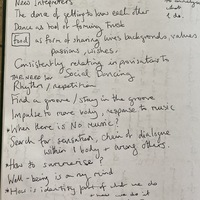 News Interpreters
to analyse
what
I do.
The dance of getting to know each other
Dance as tool of forming trust
Food as form of sharing lives backgrounds, values
passions, wishes.
Consistently relating improvisation to
THE NEED for Social Dancing
Rhythm / repetition
Find a groove / Stay in the groove
Impulse to move body, response to music
* When there is No music?
Search for sensation, chain of dialogue
within 1 body + among others.
* How to summerise?
Well-being is on my mind
* How is identity part of what we do
+ how we do it